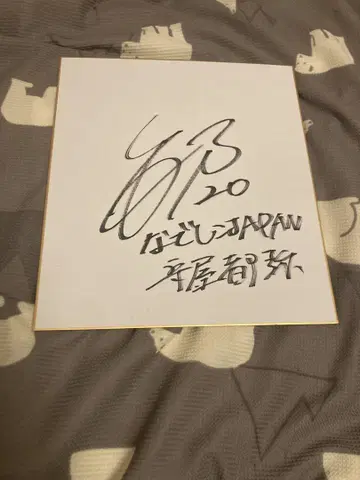 20
なでしこJAPAN
守屋都弥